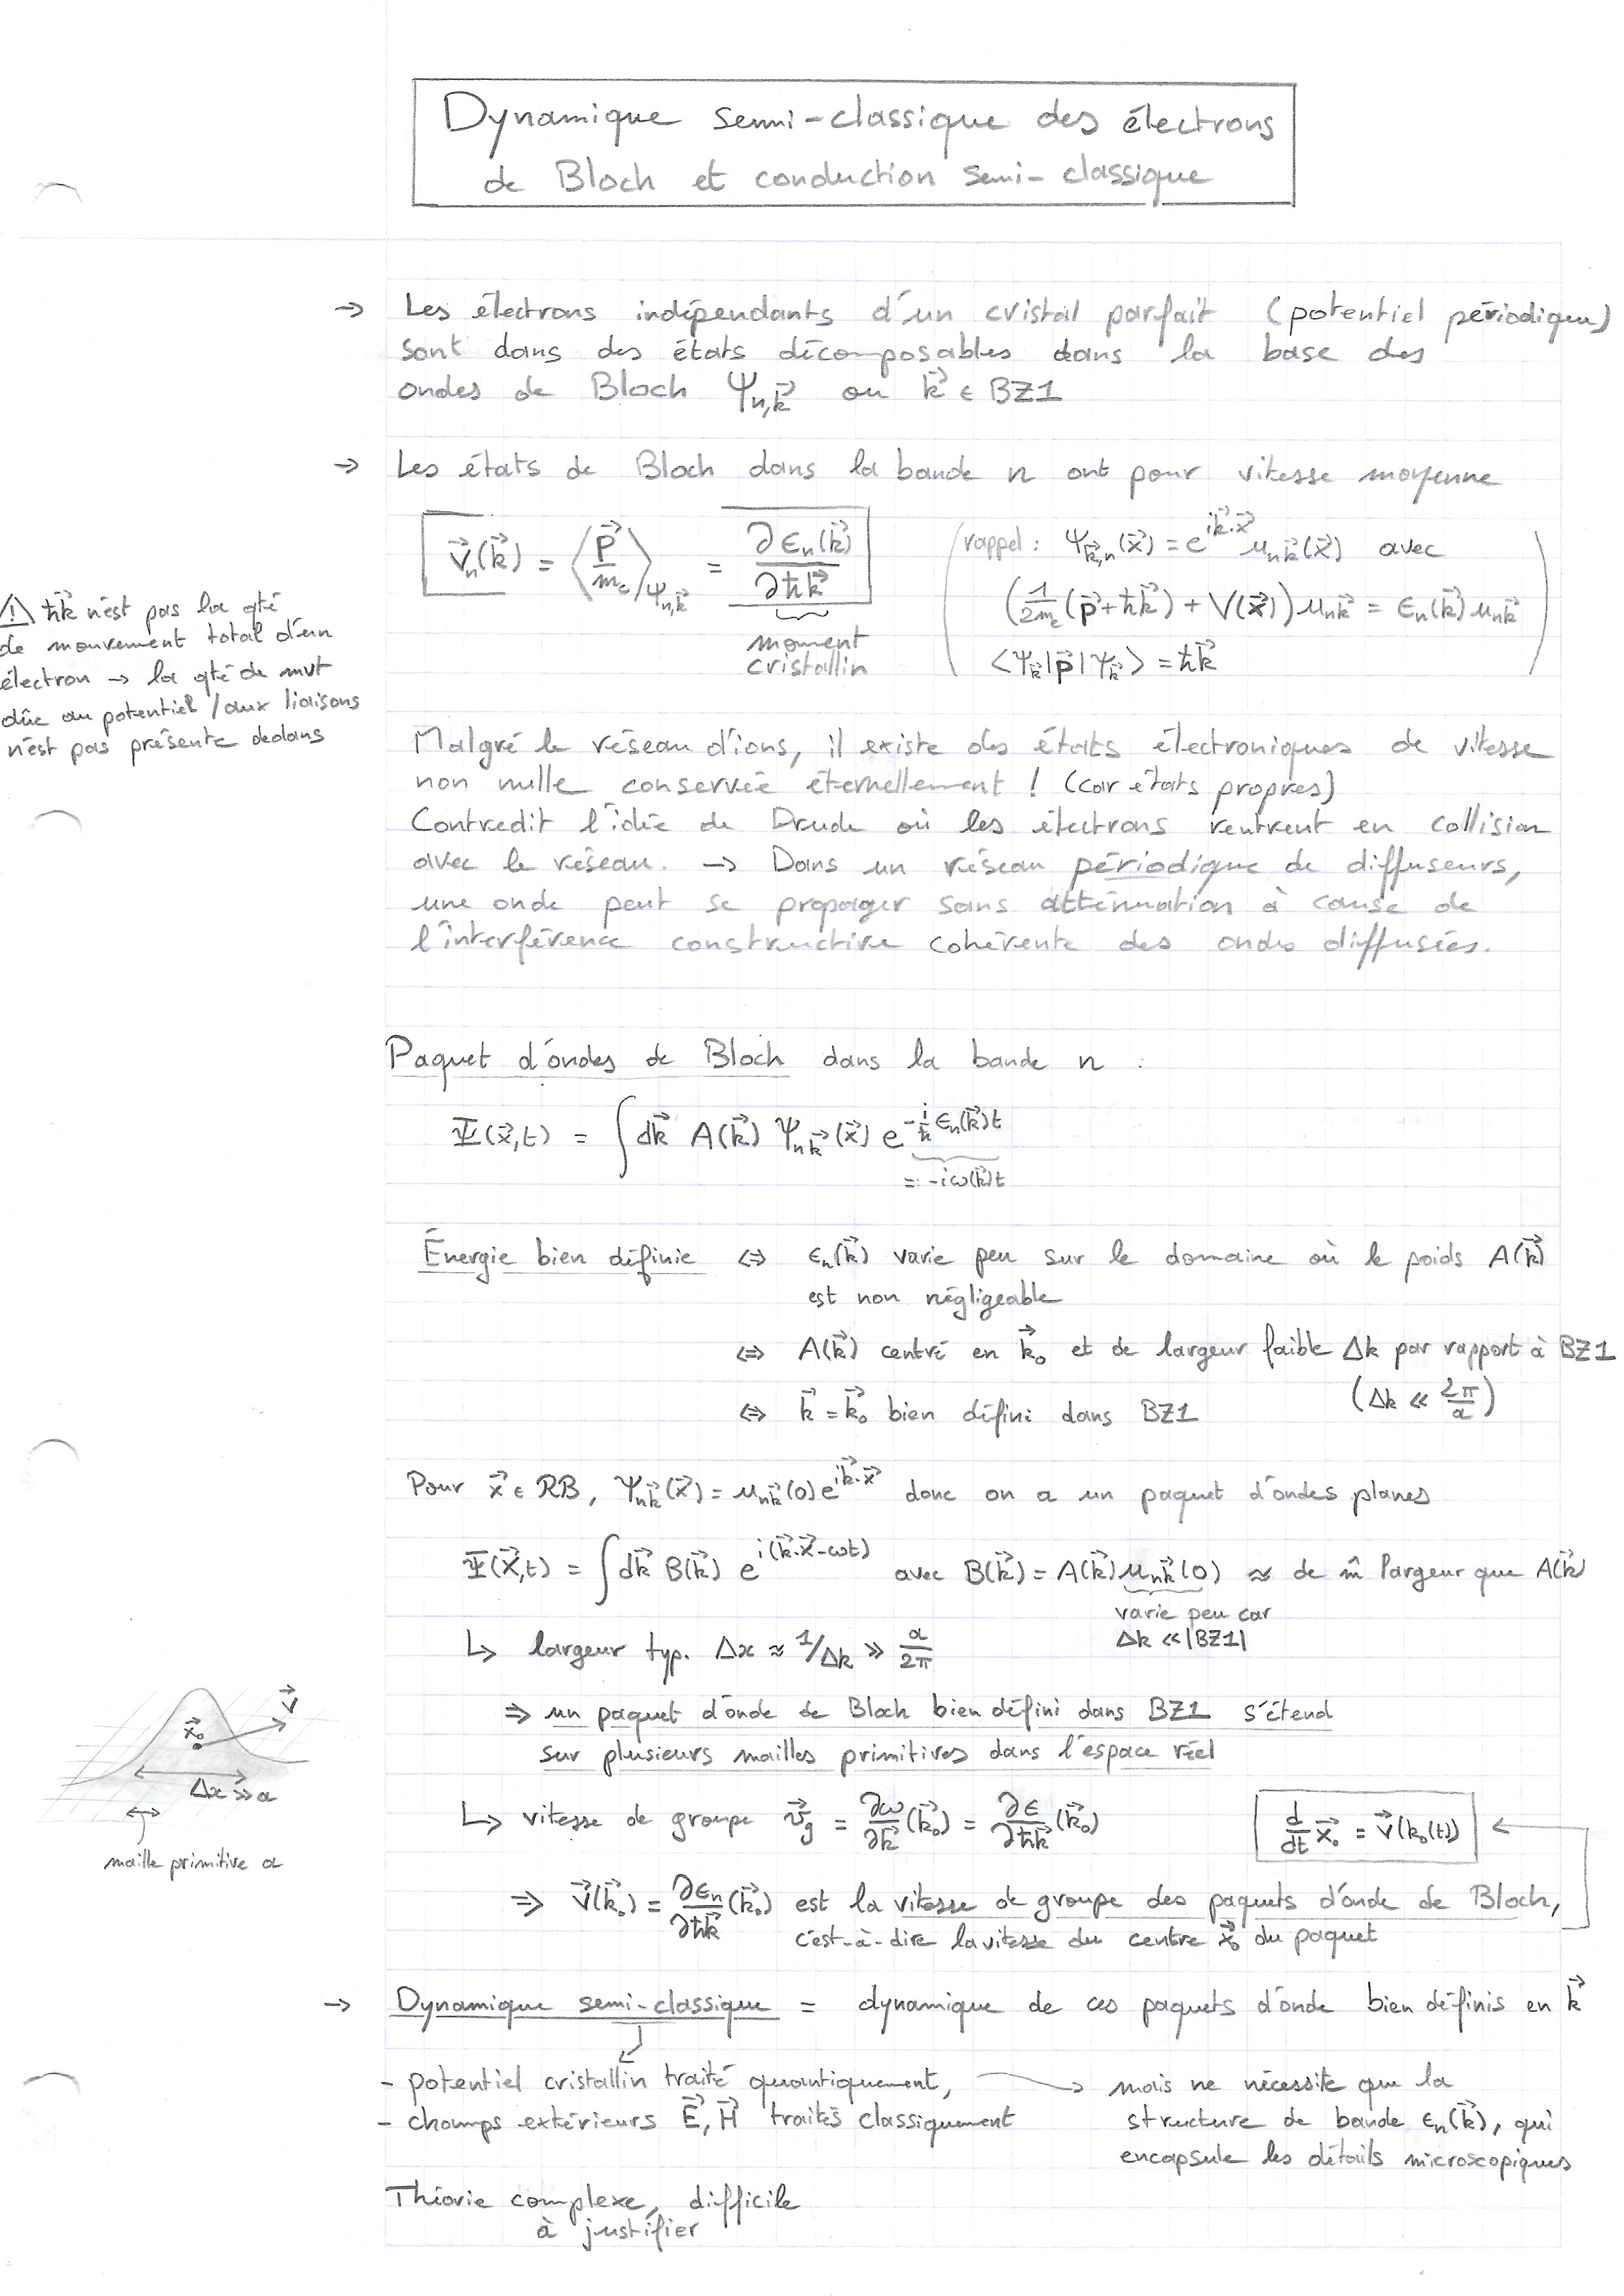 Dynamique semi-classique des électrons
de Bloch et conduction semi-classique
→ Les électrons indépendants d'un cristal parfait (potentiel périodique)
sont dans des états décomposables dans la base des
ondes de Bloch Ψ_{n,k⃗} ou k⃗ ∈ BZ1
→ Les états de Bloch dans la bande n ont pour vitesse moyenne
v⃗_n(k⃗) = ⟨p⃗/m_e⟩_{Ψ_{n,k⃗}} = ∂ϵ_n(k⃗)/∂ħk⃗
moment
cristallin
(rappel : Ψ_{k⃗,n}(x⃗) = e^{ik⃗·x⃗} u_{nk⃗}(x⃗) avec
(1/2m_e (p⃗+ħk⃗) + V(x⃗)) u_{nk⃗} = ϵ_n(k⃗) u_{nk⃗}
⟨Ψ_k⃗|p⃗|Ψ_k⃗⟩ = ħk⃗)
⚠ ħk⃗ n'est pas la qté
de mouvement total d'un
électron → la qté de mvt
dûe au potentiel / aux liaisons
n'est pas présente dedans
Malgré le réseau d'ions, il existe des états électroniques de vitesse
non nulle conservée éternellement ! (car états propres)
Contredit l'idée de Drude où les électrons rentrent en collision
avec le réseau. → Dans un réseau périodique de diffuseurs,
une onde peut se propager sans atténuation à cause de
l'interférence constructive cohérente des ondes diffusées.
Paquet d'ondes de Bloch dans la bande n :
Ψ(x⃗,t) = ∫dk⃗ A(k⃗) Ψ_{nk⃗}(x⃗) e^{-i/ħ ϵ_n(k⃗)t}
=: -iω(k⃗)t
Énergie bien définie ⇔ ϵ_n(k⃗) varie peu sur le domaine où le poids A(k⃗)
est non négligeable
⇔ A(k⃗) centré en k⃗₀ et de largeur faible Δk par rapport à BZ1
(Δk ≪ 2π/a)
⇔ k⃗ = k⃗₀ bien défini dans BZ1
Pour x⃗ ∈ RB, Ψ_{nk⃗}(x⃗) = u_{nk⃗}(0)e^{ik⃗·x⃗} donc on a un paquet d'ondes planes
Ψ(x⃗,t) = ∫dk⃗ B(k⃗) e^{i(k⃗·x⃗-ωt)} avec B(k⃗) = A(k⃗)u_{nk⃗}(0) ≈ de m̂ largeur que A(k⃗)
varie peu car
Δk ≪ |BZ1|
↳ largeur typ. Δx ≈ 1/Δk ≫ a/2π
⇒ un paquet d'onde de Bloch bien défini dans BZ1 s'étend
sur plusieurs mailles primitives dans l'espace réel
x⃗₀
v⃗
Δx ≫ a
maille primitive a
↳ vitesse de groupe v⃗_g = ∂ω/∂k⃗(k⃗₀) = ∂ϵ/∂ħk⃗(k⃗₀)
d/dt x⃗₀ = v⃗(k₀(t))
⇒ v⃗(k⃗₀) = ∂ϵ_n/∂ħk⃗(k⃗₀) est la vitesse de groupe des paquets d'onde de Bloch,
c'est-à-dire la vitesse du centre x⃗₀ du paquet
→ Dynamique semi-classique = dynamique de ces paquets d'onde bien définis en k⃗
- potentiel cristallin traité quantiquement,
- champs extérieurs E⃗, H⃗ traités classiquement
→ mais ne nécessite que la
structure de bande ϵ_n(k⃗), qui
encapsule les détails microscopiques
Théorie complexe, difficile
à justifier